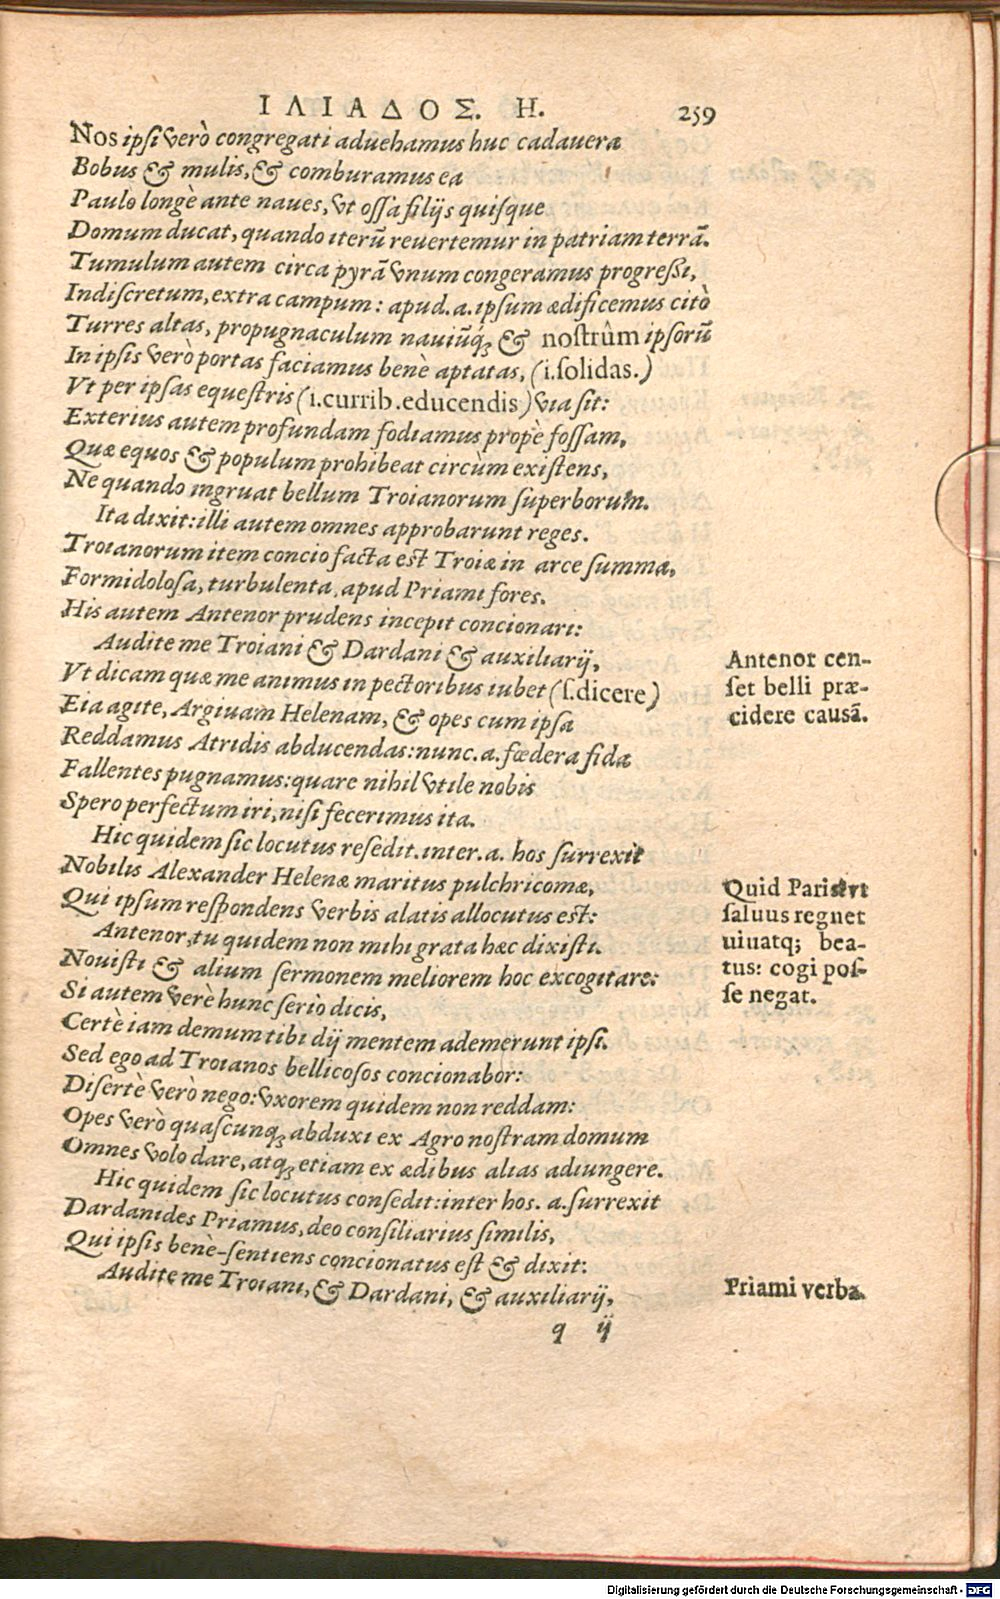 ΙΛΙΑΔΟΣ. Η. 259
Nos ipsi verò congregati aduehamus huc cadauera
Bobus & mulis, & comburamus ea
Paulò longè ante naues, vt ossa filijs quisque
Domum ducat, quando iterū reuertemur in patriam terrā.
Tumulum autem circa pyrā vnum congeramus progreßi,
Indiscretum, extra campum: apud. a. ipsum ædificemus citò
Turres altas, propugnaculum nauiūq́; & nostrûm ipsorū
In ipsis verò portas faciamus benè aptatas, (i. solidas.)
Vt per ipsas equestris (i. currib. educendis) via sit:
Exterius autem profundam fodiamus propè fossam,
Quæ equos & populum prohibeat circùm existens,
Ne quando ingruat bellum Troianorum superborum.
Ita dixit: illi autem omnes approbarunt reges.
Troianorum item concio facta est Troiæ in arce summa,
Formidolosa, turbulenta, apud Priami fores.
His autem Antenor prudens incepit concionari:
Audite me Troiani & Dardani & auxiliarij,
Vt dicam quæ me animus in pectoribus iubet (s. dicere)
Antenor cen-
set belli præ-
cidere causā.
Eia agite, Argiuam Helenam, & opes cum ipsa
Reddamus Atridis abducendas: nunc. a. fœdera fida
Fallentes pugnamus: quare nihil vtile nobis
Spero perfectum iri, nisi fecerimus ita.
Hic quidem sic locutus resedit. inter. a. hos surrexit
Nobilis Alexander Helenæ maritus pulchricomæ,
Qui ipsum respondens verbis alatis allocutus est:
Quid Paris? vt
saluus regnet
uiuatq; bea-
tus: cogi pos-
se negat.
Antenor, tu quidem non mihi grata hæc dixisti.
Nouisti & alium sermonem meliorem hoc excogitare:
Si autem verè hunc seriò dicis,
Certè iam demum tibi dij mentem ademerunt ipsi.
Sed ego ad Troianos bellicosos concionabor:
Disertè verò nego: vxorem quidem non reddam:
Opes verò quascunq; abduxi ex Agro nostram domum
Omnes volo dare, atq; etiam ex ædibus alias adiungere.
Hic quidem sic locutus consedit: inter hos. a. surrexit
Dardanides Priamus, deo consiliarius similis,
Qui ipsis benè-sentiens concionatus est & dixit:
Audite me Troiani, & Dardani, & auxiliarij,
Priami verba.
q ij
Digitalisierung gefördert durch die Deutsche Forschungsgemeinschaft - DFG